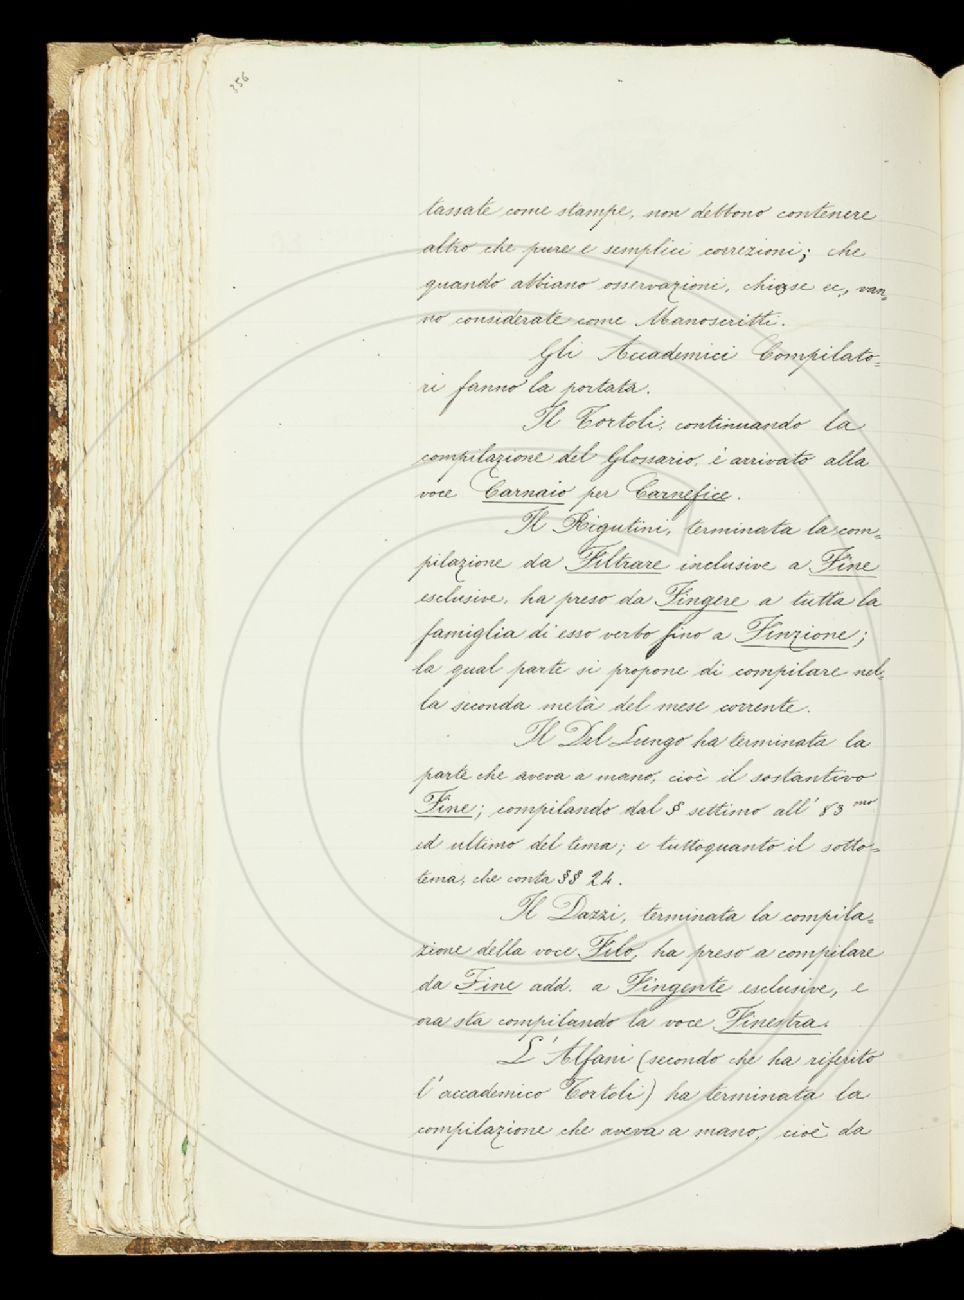 356
tassate come stampe, non debbono contenere
altro che pure e semplici correzioni; che
quando abbiano osservazioni, chiose ec., van=
no considerate come Manoscritti.
Gli Accademici Compilato=
ri fanno la portata.
Il Tortoli, continuando la
compilazione del Glossario, è arrivato alla
voce Carnaio per Carnefice.
Il Rigutini, terminata la com=
pilazione da Filtrare inclusive a Fine
esclusive, ha preso da Fingere a tutta la
famiglia di esso verbo fino a Finzione;
la qual parte si propone di compilare nel=
la seconda metà del mese corrente.
Il Del Lungo ha terminata la
parte che aveva a mano, cioè il sostantivo
Fine; compilando dal § settimo all' 83mo
ed ultimo del tema; e tuttoquanto il sotto=
tema, che conta §§ 24.
Il Dazzi, terminata la compila=
zione della voce Filo, ha preso a compilare
da Fine add. a Fingente esclusive, e
ora sta compilando la voce Finestra.
L'Alfani (secondo che ha riferito
l'accademico Tortoli) ha terminata la
compilazione che aveva a mano, cioè da